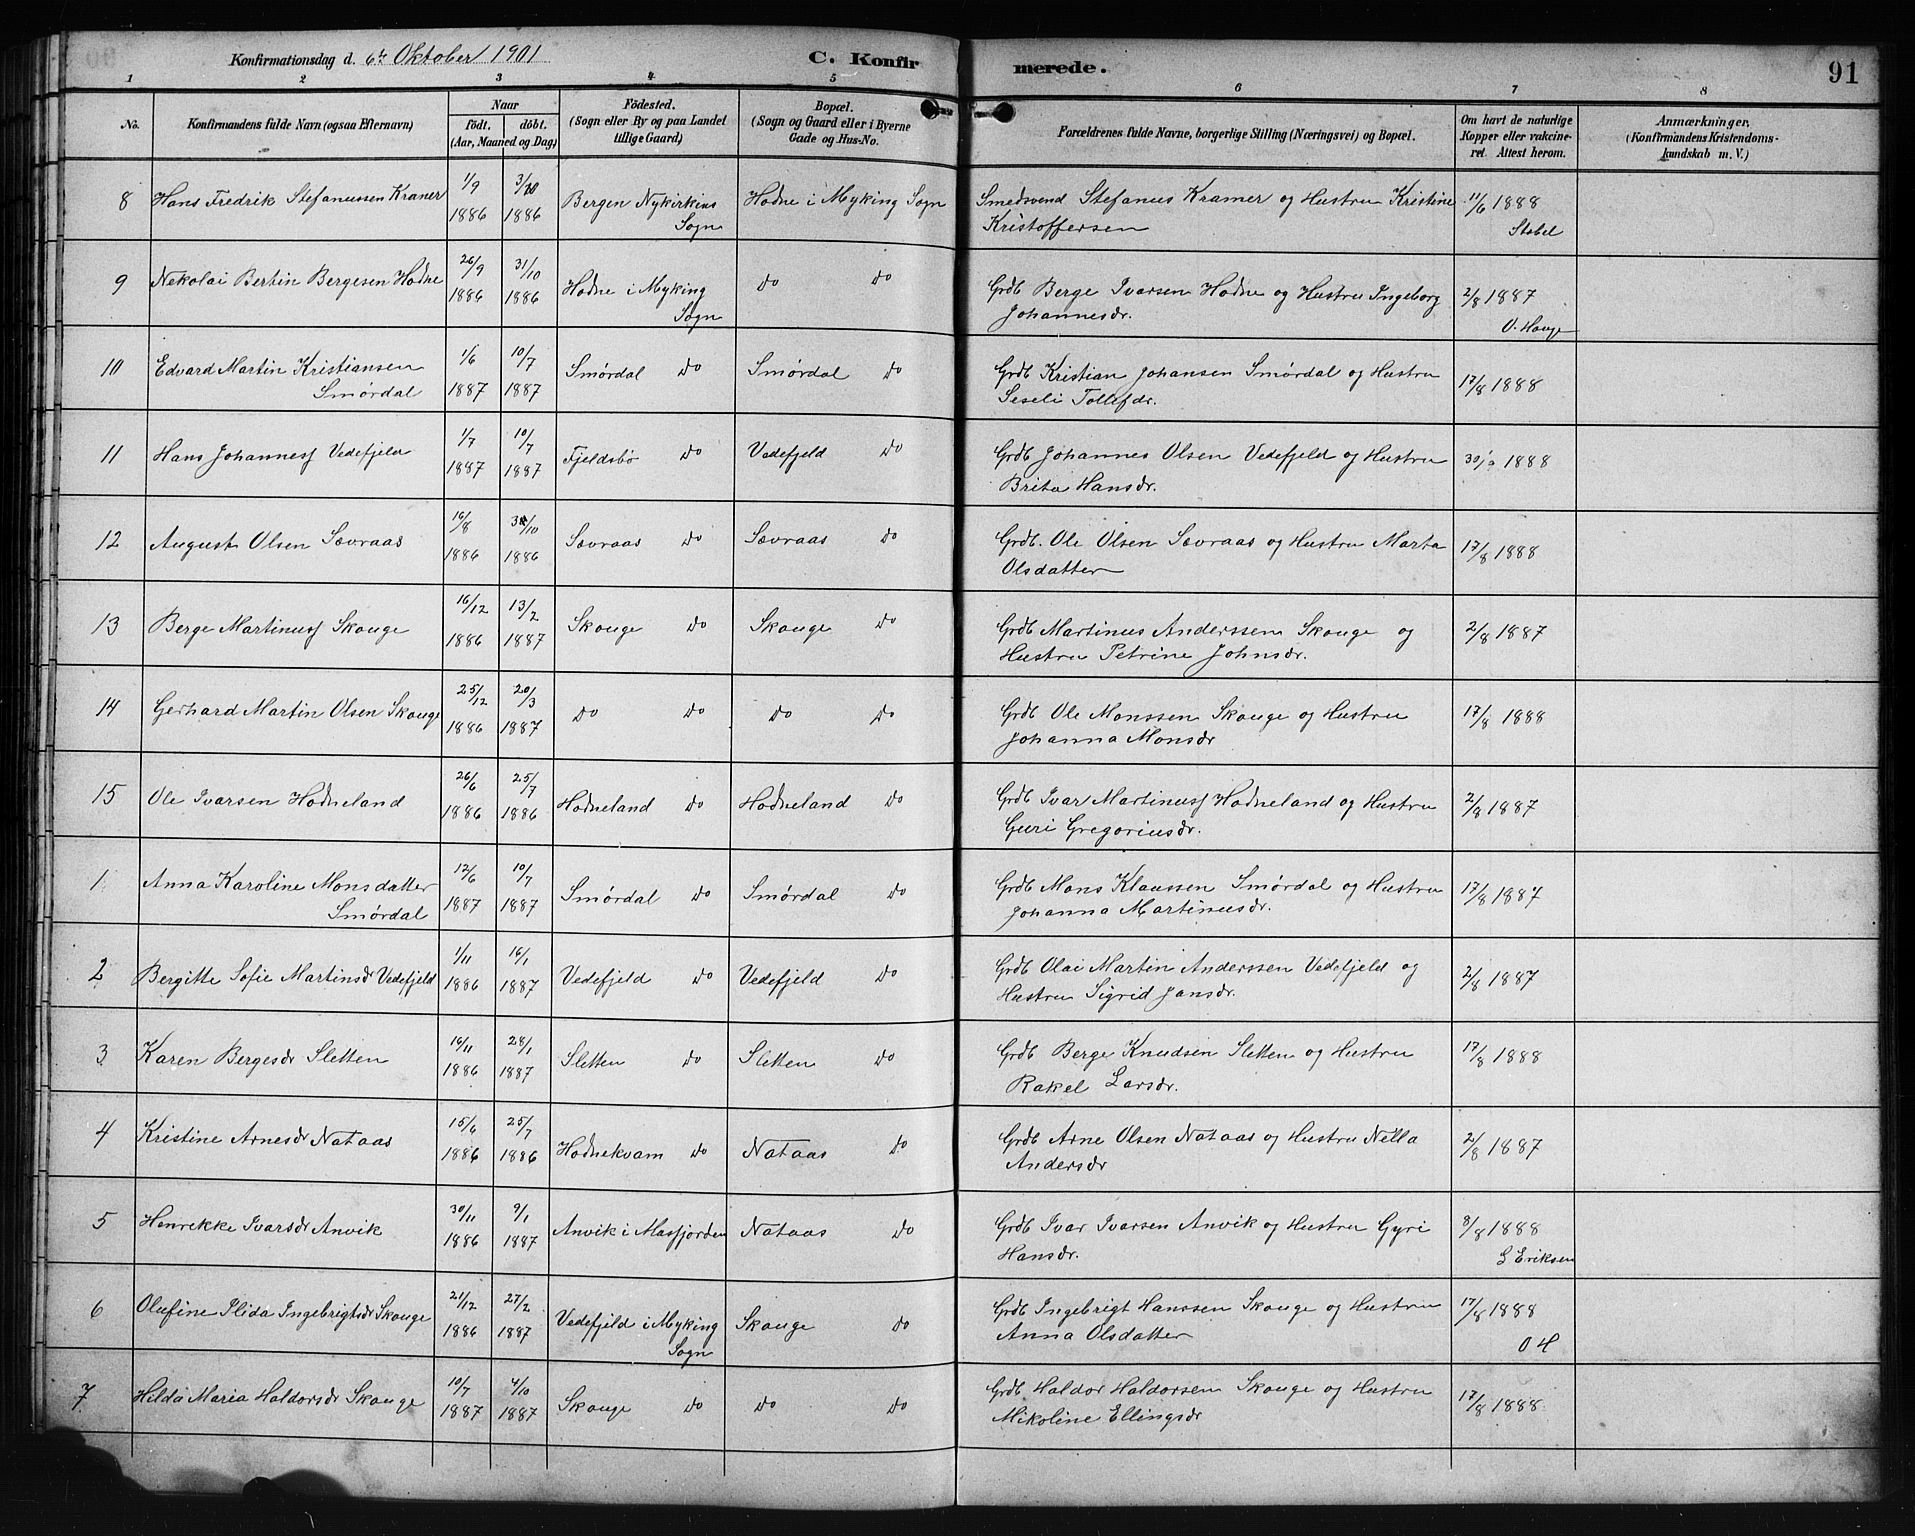 Konfirmationsdag d. 6te Oktober 1901
C. Konfirmerede.
91
1 2 3 4 5 6 7 8
No. Konfirmandens fulde Navn (ogsaa Efternavn) Naar födt. döbt. (Aar, Maaned og Dag) Födested. (Sogn eller By og paa Landet tillige Gaard) Bopæl. (Sogn og Gaard eller i Byerne Gade og Hus-No. Forældrenes fulde Navne, borgerlige Stilling (Næringsvei) og Bopæl. Om havt de naturlige Kopper eller vakcineret. Attest herom. Anmærkninger, (Konfirmandens Kristendomskundskab m. V.)
8 Hans Fredrik Stefanussen Kramer 1/9 1886 3/10 1886 Bergen Nykirkens Sogn Hodne i Myking Sogn Smedsvend Stefanus Kramer og Hustru Kristine
Kristoffersen 11/6 1888 Stabel
9 Nekolai Bertin Bergesen Hodne 26/9 1886 31/10 1886 Hodne i Myking Sogn Do Do Grdb Berge Ivarsen Hodne og Hustru Ingeborg
Johannesdr. 2/8 1887 O. Hauge
10 Edvard Martin Kristiansen Smørdal 1/6 1887 10/7 1887 Smørdal Do Smørdal Do Grdb Kristian Johansen Smørdal og Hustru
Seseli Tollefdr. 17/8 1888
11 Hans Johannesf Vedefjeld 1/7 1887 10/7 1887 Fjeldsbø Do Vedefjeld Do Grdb Johannes Olsen Vedefjeld og Hustru
Brita Hansdr. 1888
12 August Olsen Sævraas 16/8 1886 /10 1886 Sævraas Do Sævraas Do Grdb. Ole Olsen Sævraas og Hustru Marta
Olsdatter 17/8 1888
13 Berge Martinusf Skauge 16/12 1886 13/2 1887 Skauge Do Skauge Do Grdb Martinus Anderssen Skauge og
Hustru Petrine Johnsdr. 2/8 1887
14 Gerhard Martin Olsen Skauge 25/12 1886 20/3 1887 Do Do Do Do Grdb Ole Monssen Skauge og Hustru
Johanna Monsdr 17/8 1888
15 Ole Ivarsen Hodneland 26/6 1886 25/7 1886 Hodneland Do Hodneland Do Grdb Ivar Martinusf Hodneland og Hustru
Guri Gregoriusdr. 2/8 1887
1 Anna Karoline Monsdatter Smørdal 12/6 1887 10/7 1887 Smørdal Do Smørdal Do Grdb Mons Klaussen Smørdal og Hustru
Johanna Martinusdr. 17/8 1887
2 Bergitte Sofie Martinsdr Vedefjeld 1/11 1886 16/1 1887 Vedefjeld Do Vedefjeld Do Grdb Olai Martin Anderssen Vedefjeld og
Hustru Sigrid Jansdr. 2/8 1887
3 Karen Bergesdr Sletten 16/11 1886 28/1 1887 Sletten Do Sletten Do Grdb Berge Knudsen Sletten og Hustru
Rakel Larsdr. 17/8 1888
4 Kristine Arnesdr Nataas 15/6 1886 25/7 1886 Hodnekvam Do Nataas Do Grdb Arne Olsen Nataas og Hustru Nella
Andersdr 2/8 1887
5 Henrekke Ivarsdr Anvik 30/11 1886 9/1 1887 Anvik i Masfjorden Nataas Do Grdb Ivar Ivarsen Anvik og Hustru Gyri
Hansdr. 8/8 1888 Eriksen
6 Olufine Ilida Ingebrigtsdr Skauge 21/12 1886 27/2 1887 Vedefjeld i Myking Sogn Skauge Do Grdb Ingebrigt Hanssen Skauge og Hustru
Anna Olsdatter 17/8 1888 O H
7 Hilda Maria Haldorsdr Skauge 10/7 1887 4/10 1887 Skauge Do Do Do Grdb Haldor Haldorsen Skauge og Hustru
Mikoline Ellingsdr 17/8 1888